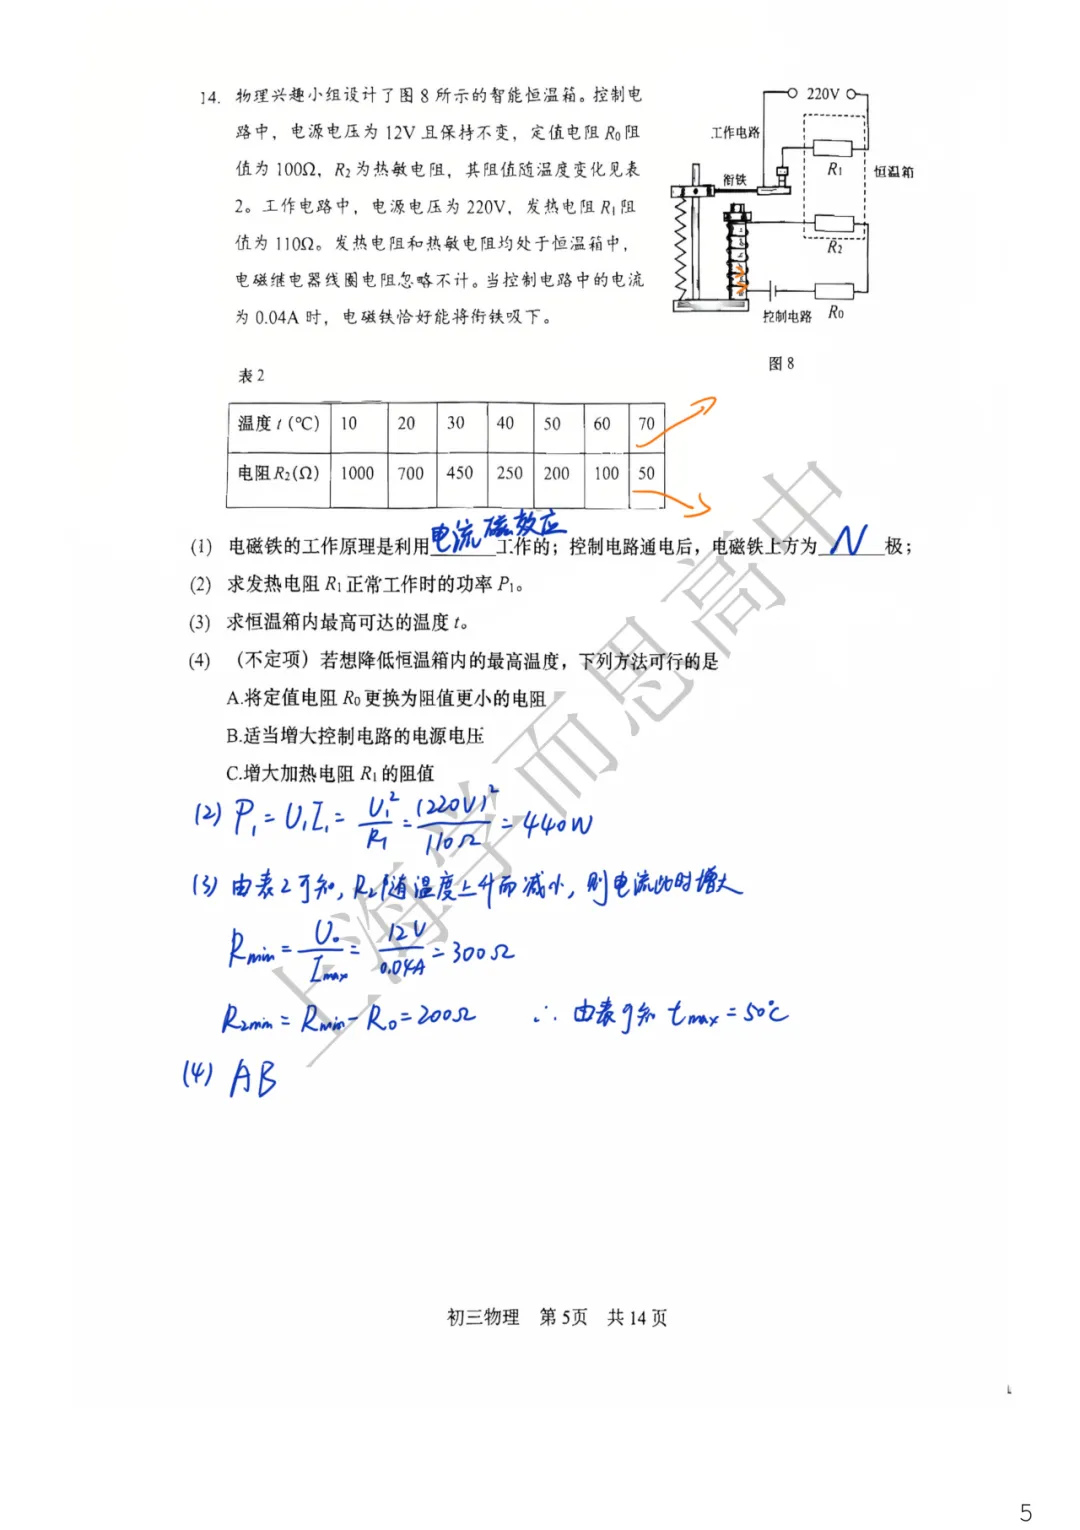 14. 物理兴趣小组设计了图 8 所示的智能恒温箱。控制电
路中，电源电压为 12V 且保持不变，定值电阻 R₀ 阻
值为 100Ω，R₂ 为热敏电阻，其阻值随温度变化见表
2。工作电路中，电源电压为 220V，发热电阻 R₁ 阻
值为 110Ω。发热电阻和热敏电阻均处于恒温箱中，
电磁继电器线圈电阻忽略不计。当控制电路中的电流
为 0.04A 时，电磁铁恰好能将衔铁吸下。
220V
工作电路
R₁
恒温箱
衔铁
R₂
控制电路
R₀
图 8
表 2
温度 t (℃) 10 20 30 40 50 60 70
电阻 R₂(Ω) 1000 700 450 250 200 100 50
(1) 电磁铁的工作原理是利用电流磁效应工作的；控制电路通电后，电磁铁上方为 N 极；
(2) 求发热电阻 R₁ 正常工作时的功率 P₁。
(3) 求恒温箱内最高可达的温度 t。
(4) （不定项）若想降低恒温箱内的最高温度，下列方法可行的是
A.将定值电阻 R₀ 更换为阻值更小的电阻
B.适当增大控制电路的电源电压
C.增大加热电阻 R₁ 的阻值
(2) P₁ = U₁I₁ = U₁²/R₁ = (220V)²/110Ω = 440W
(3) 由表2可知，R₂随温度上升而减小，则电流此时增大
Rmin = U₀/Imax = 12V/0.04A = 300Ω
R₂min = Rmin - R₀ = 200Ω ∴ 由表可知 tmax = 50℃
(4) AB
上海学而思高中
初三物理 第 5页 共 14 页
5